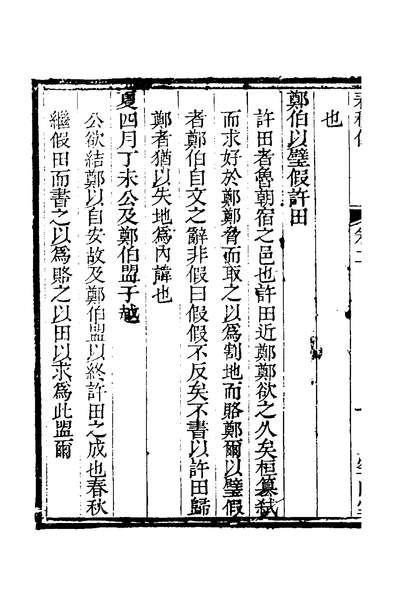 也
鄭伯以璧假許田
許田者魯朝宿之邑也許田近鄭鄭欲之久矣桓篡弒
而求好於鄭鄭脅而取之以為割地而賂鄭爾以璧假
者鄭伯自文之辭非假曰假假不反矣不書以許田歸
鄭者猶以失地為內諱也
夏四月丁未公及鄭伯盟于越
公欲結鄭以自安故及鄭伯盟以終許田之成也春秋
繼假田而書之以為賂之以田以求為此盟爾